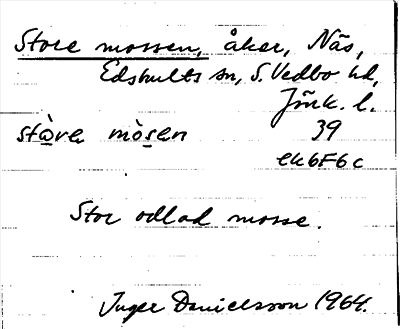 Store mossen, åker, Näs,
Edshults sn, S. Vedbo hd,
Jönk. l.
stòre mòsen 39
ek6F6c
Stor odlad mosse.
Inger Danielsson 1964.